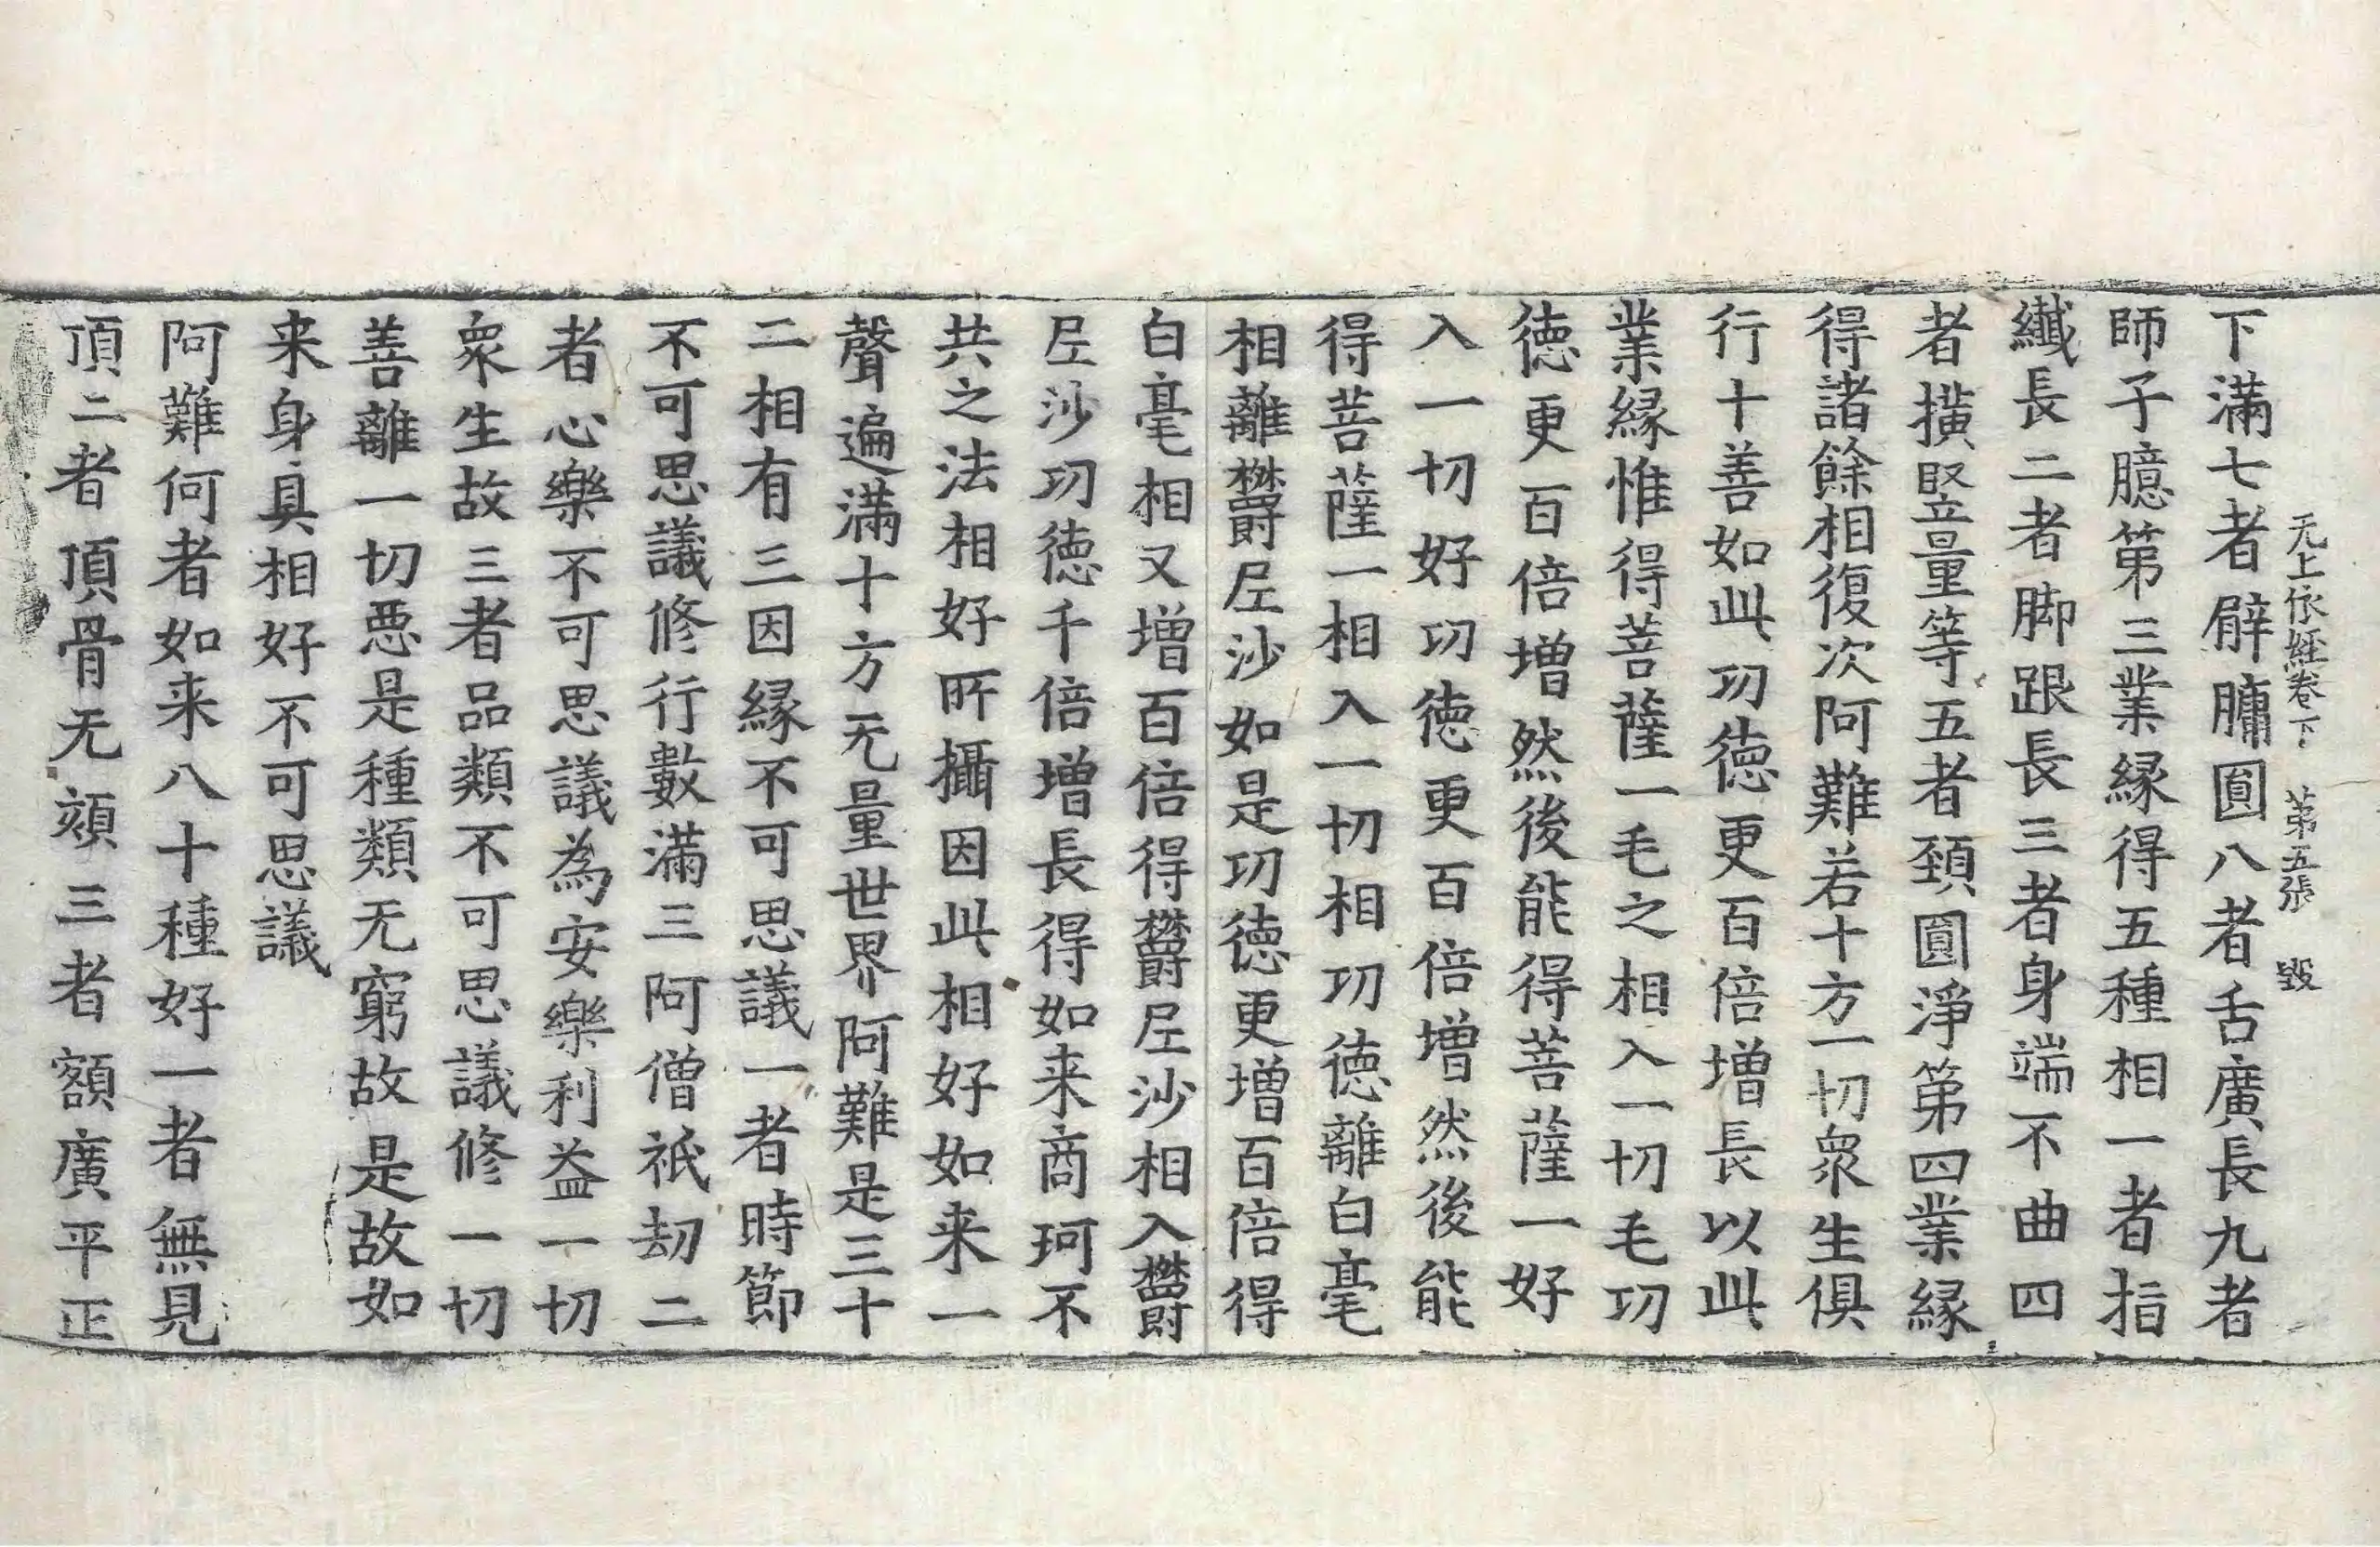 无上依經卷下 第五張 毀
下滿七者臂𦟛圓八者舌廣長九者
師子臆第三業緣得五種相一者指
纖長二者脚跟長三者身端不曲四
者擴竪量等五者頚圓淨第四業緣
得諸餘相復次阿難若十方一切衆生俱
行十善如此功德更百倍增長以此
業緣惟得菩薩一毛之相入一切毛功
德更百倍增然後能得菩薩一好
入一切好功德更百倍增然後能
得菩薩一相入一切相功德離白毫
相離欝𡰱沙如是功德更增百倍得
白毫相又增百倍得欝𡰱沙相入欝
𡰱沙功德千倍增長得如来商珂不
共之法相好所攝因此相好如来一
聲遍滿十方无量世界阿難是三十
二相有三因緣不可思議一者時節
不可思議修行數滿三阿僧祇劫二
者心樂不可思議為安樂利益一切
衆生故三者品類不可思議修一切
善離一切悪是種類无窮故是故如
来身具相好不可思議
阿難何者如来八十種好一者無見
頂二者頂骨无頦三者額廣平正